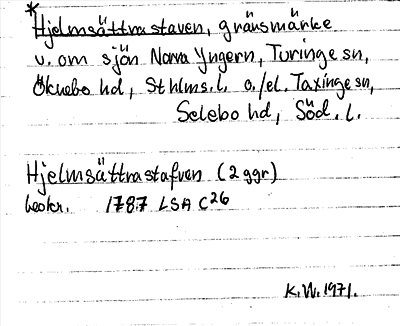 *Hjelmsättrastaven, gränsmärke
v. om sjön Norra Yngern, Turinge sn,
Öknebo hd, Sthlms. l. o./el. Taxinge sn,
Selebo hd, Söd. l.
Hjelmsättrastafven (2 ggr)
beskr. 1787 LSA C26
K.W. 1971.